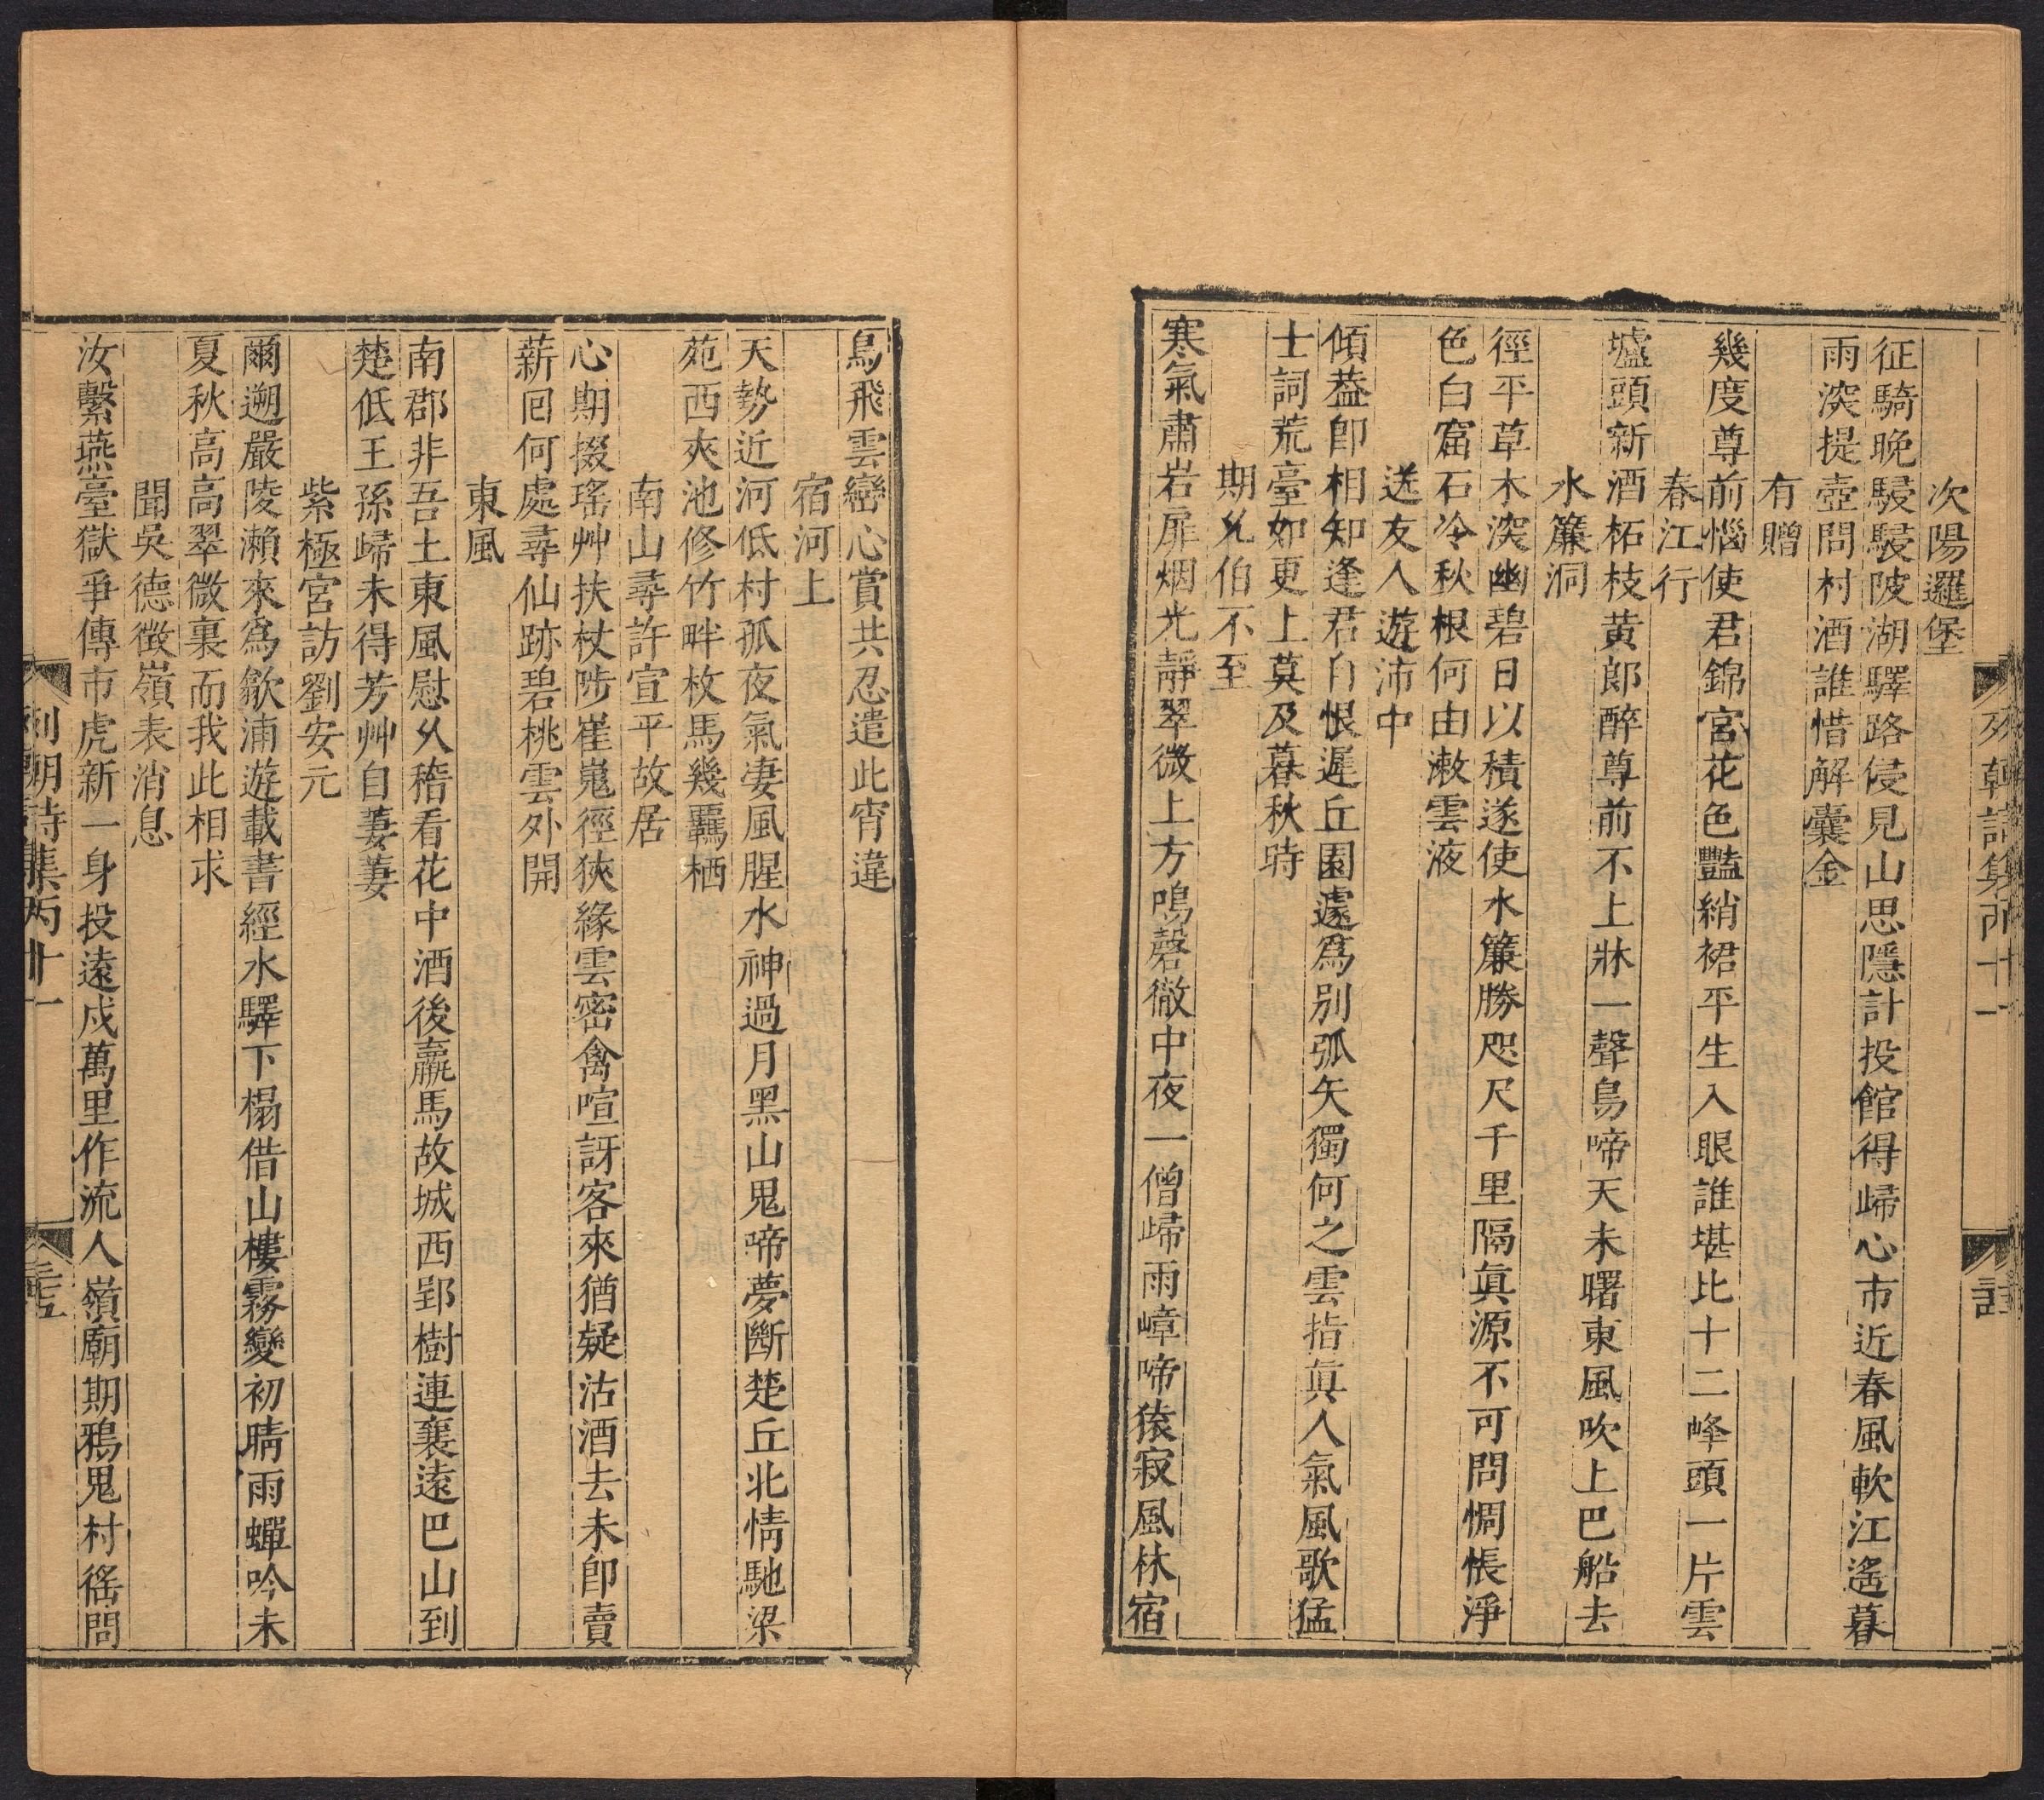 列朝詩集丙十一
次陽邏堡
征騎晚駸駸陂湖驛路侵見山思隱計投館得歸心市近春風軟江遙暮
雨深提壺問村酒誰惜解囊金
有贈
幾度尊前惱使君錦宮花色豔綃裙平生入眼誰堪比十二峰頭一片雲
春江行
壚頭新酒柘枝黃郎醉尊前不上牀一聲烏啼天未曙東風吹上巴船去
水簾洞
徑平草木深幽碧日以積遂使水簾勝咫尺千里隔眞源不可問惆悵淨
色白窟石冷秋根何由漱雲液
送友人遊沛中
傾葢卽相知逢君自恨遲丘園遽爲別弧矢獨何之雲指眞人氣風歌猛
士詞荒臺如更上莫及暮秋時
期允伯不至
寒氣肅岩扉烟光靜翠微上方鳴磬徹中夜一僧歸雨嶂啼猿寂風林宿
鳥飛雲巒心賞共忍遣此宵違
宿河上
天勢近河低村孤夜氣凄風腥水神過月黑山鬼啼夢斷楚丘北情馳梁
苑西夾池修竹畔枚馬幾羈栖
南山尋許宣平故居
心期掇瑤艸扶杖陟崔嵬徑狹緣雲密禽喧訝客來猶疑沽酒去未卽賣
薪囘何處尋仙跡碧桃雲外開
東風
南郡非吾土東風慰久稽看花中酒後羸馬故城西郢樹連襄遠巴山到
楚低王孫歸未得芳艸自萋萋
紫極宮訪劉安元
爾遡嚴陵瀨來爲歙浦遊載書經水驛下榻借山樓霧變初晴雨蟬吟未
夏秋高高翠微裏而我此相求
聞吳德徵嶺表消息
汝繫燕臺獄爭傳市虎新一身投遠戍萬里作流人嶺廟期鴉鬼村徭問
列朝詩集丙十一